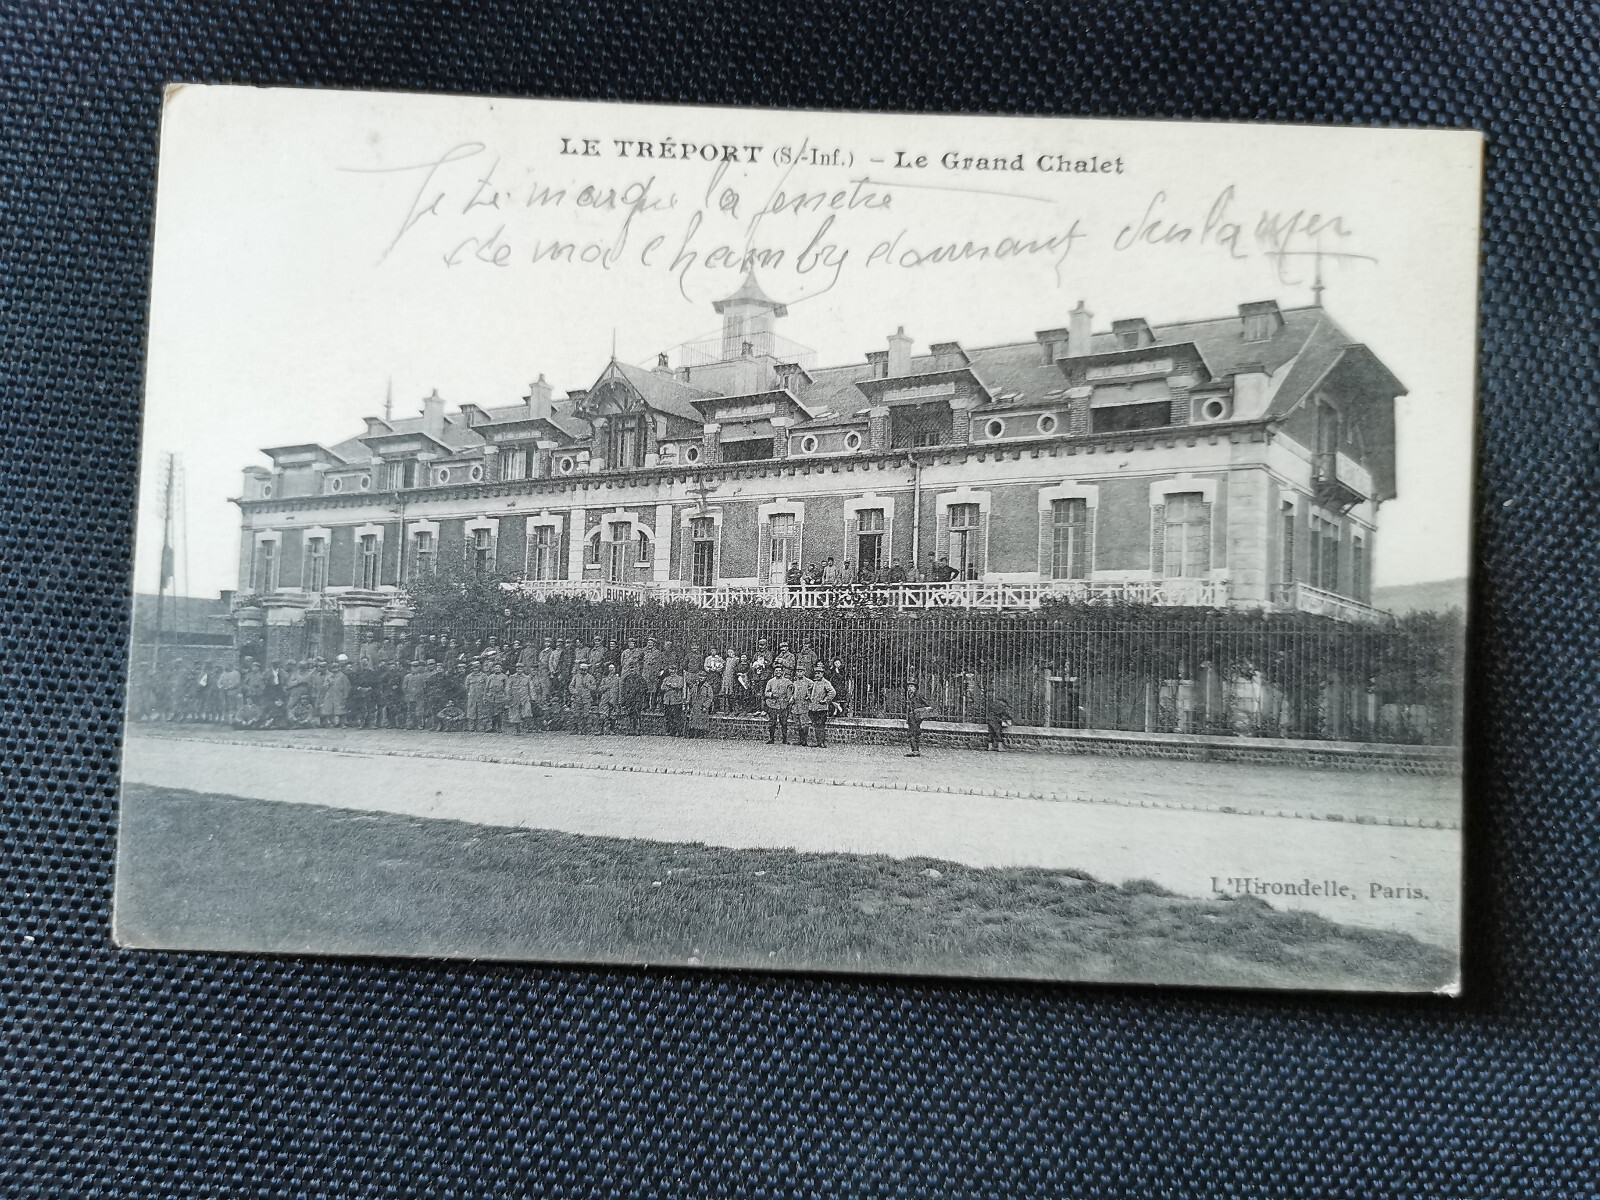 LE TRÉPORT (S.-Inf.) – Le Grand Chalet
Je te marque la fenetre
de ma chambre donnant sur la mer
BUREAU
L'Hirondelle, Paris.